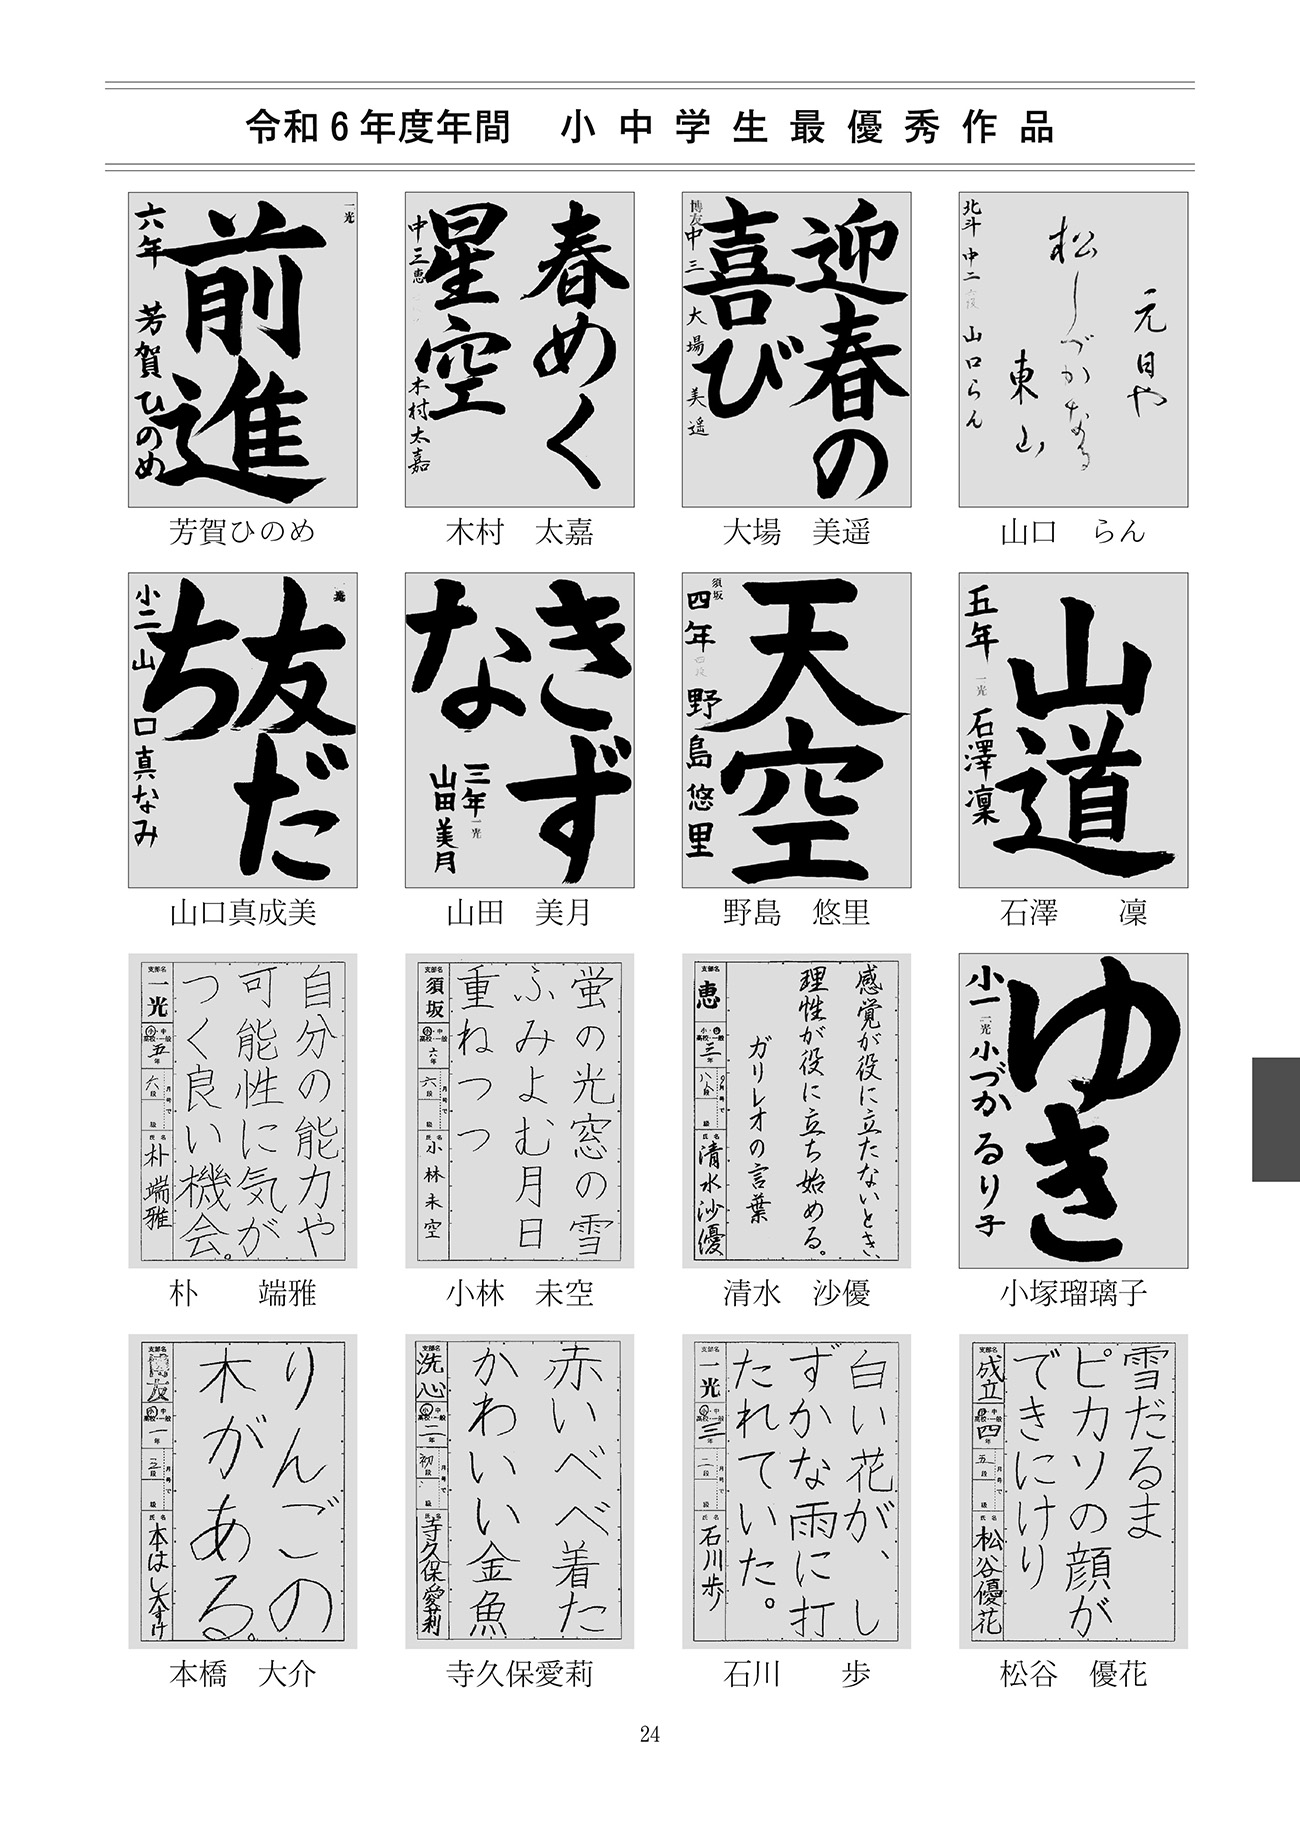 令和6年度年間　小中学生最優秀作品
一光
前進
六年　芳賀ひのめ
芳賀ひのめ
春めく
星空
中三恵
木村太嘉
木村　太嘉
迎春の
喜び
博友
中三　大場　美遥
大場　美遥
元日や
松しづかなる
東山
北斗　中二　六段　山口らん
山口　らん
友だ
ち
小二山口真なみ
山口真成美
きず
な
三年
一光
山田美月
山田　美月
天空
須坂
四年　四段　野島悠里
野島　悠里
山道
五年　一光　石澤凜
石澤　凜
自分の能力や
可能性に気が
つく良い機会。
支部名
一光
小・中
高校・一般
五年
月号で
六段
級
氏名
朴端雅
朴　端雅
蛍の光窓の雪
ふみよむ月日
重ねつつ
支部名
須坂
小・中
高校・一般
六年
月号で
六段
級
氏名
小林未空
小林　未空
感覚が役に立たないとき、
理性が役に立ち始める。
ガリレオの言葉
支部名
恵
小・中
高校・一般
三年
9月号で
八段
級
氏名
清水沙優
清水　沙優
ゆき
小一　一光　小づかるり子
小塚瑠璃子
りんごの
木がある。
支部名
小・中
高校・一般
一年
月号で
三段
級
氏名
本はし大すけ
本橋　大介
赤いべべ着た
かわいい金魚
支部名
洗心
小・中
高校・一般
二年
月号で
初段
級
氏名
寺久保愛莉
寺久保愛莉
白い花が、し
ずかな雨に打
たれていた。
支部名
一光
小・中
高校・一般
三年
月号で
二段
級
氏名
石川歩
石川　歩
雪だるま
ピカソの顔が
できにけり
支部名
成立
小・中
高校・一般
四年
月号で
五段
級
氏名
松谷優花
松谷　優花
24